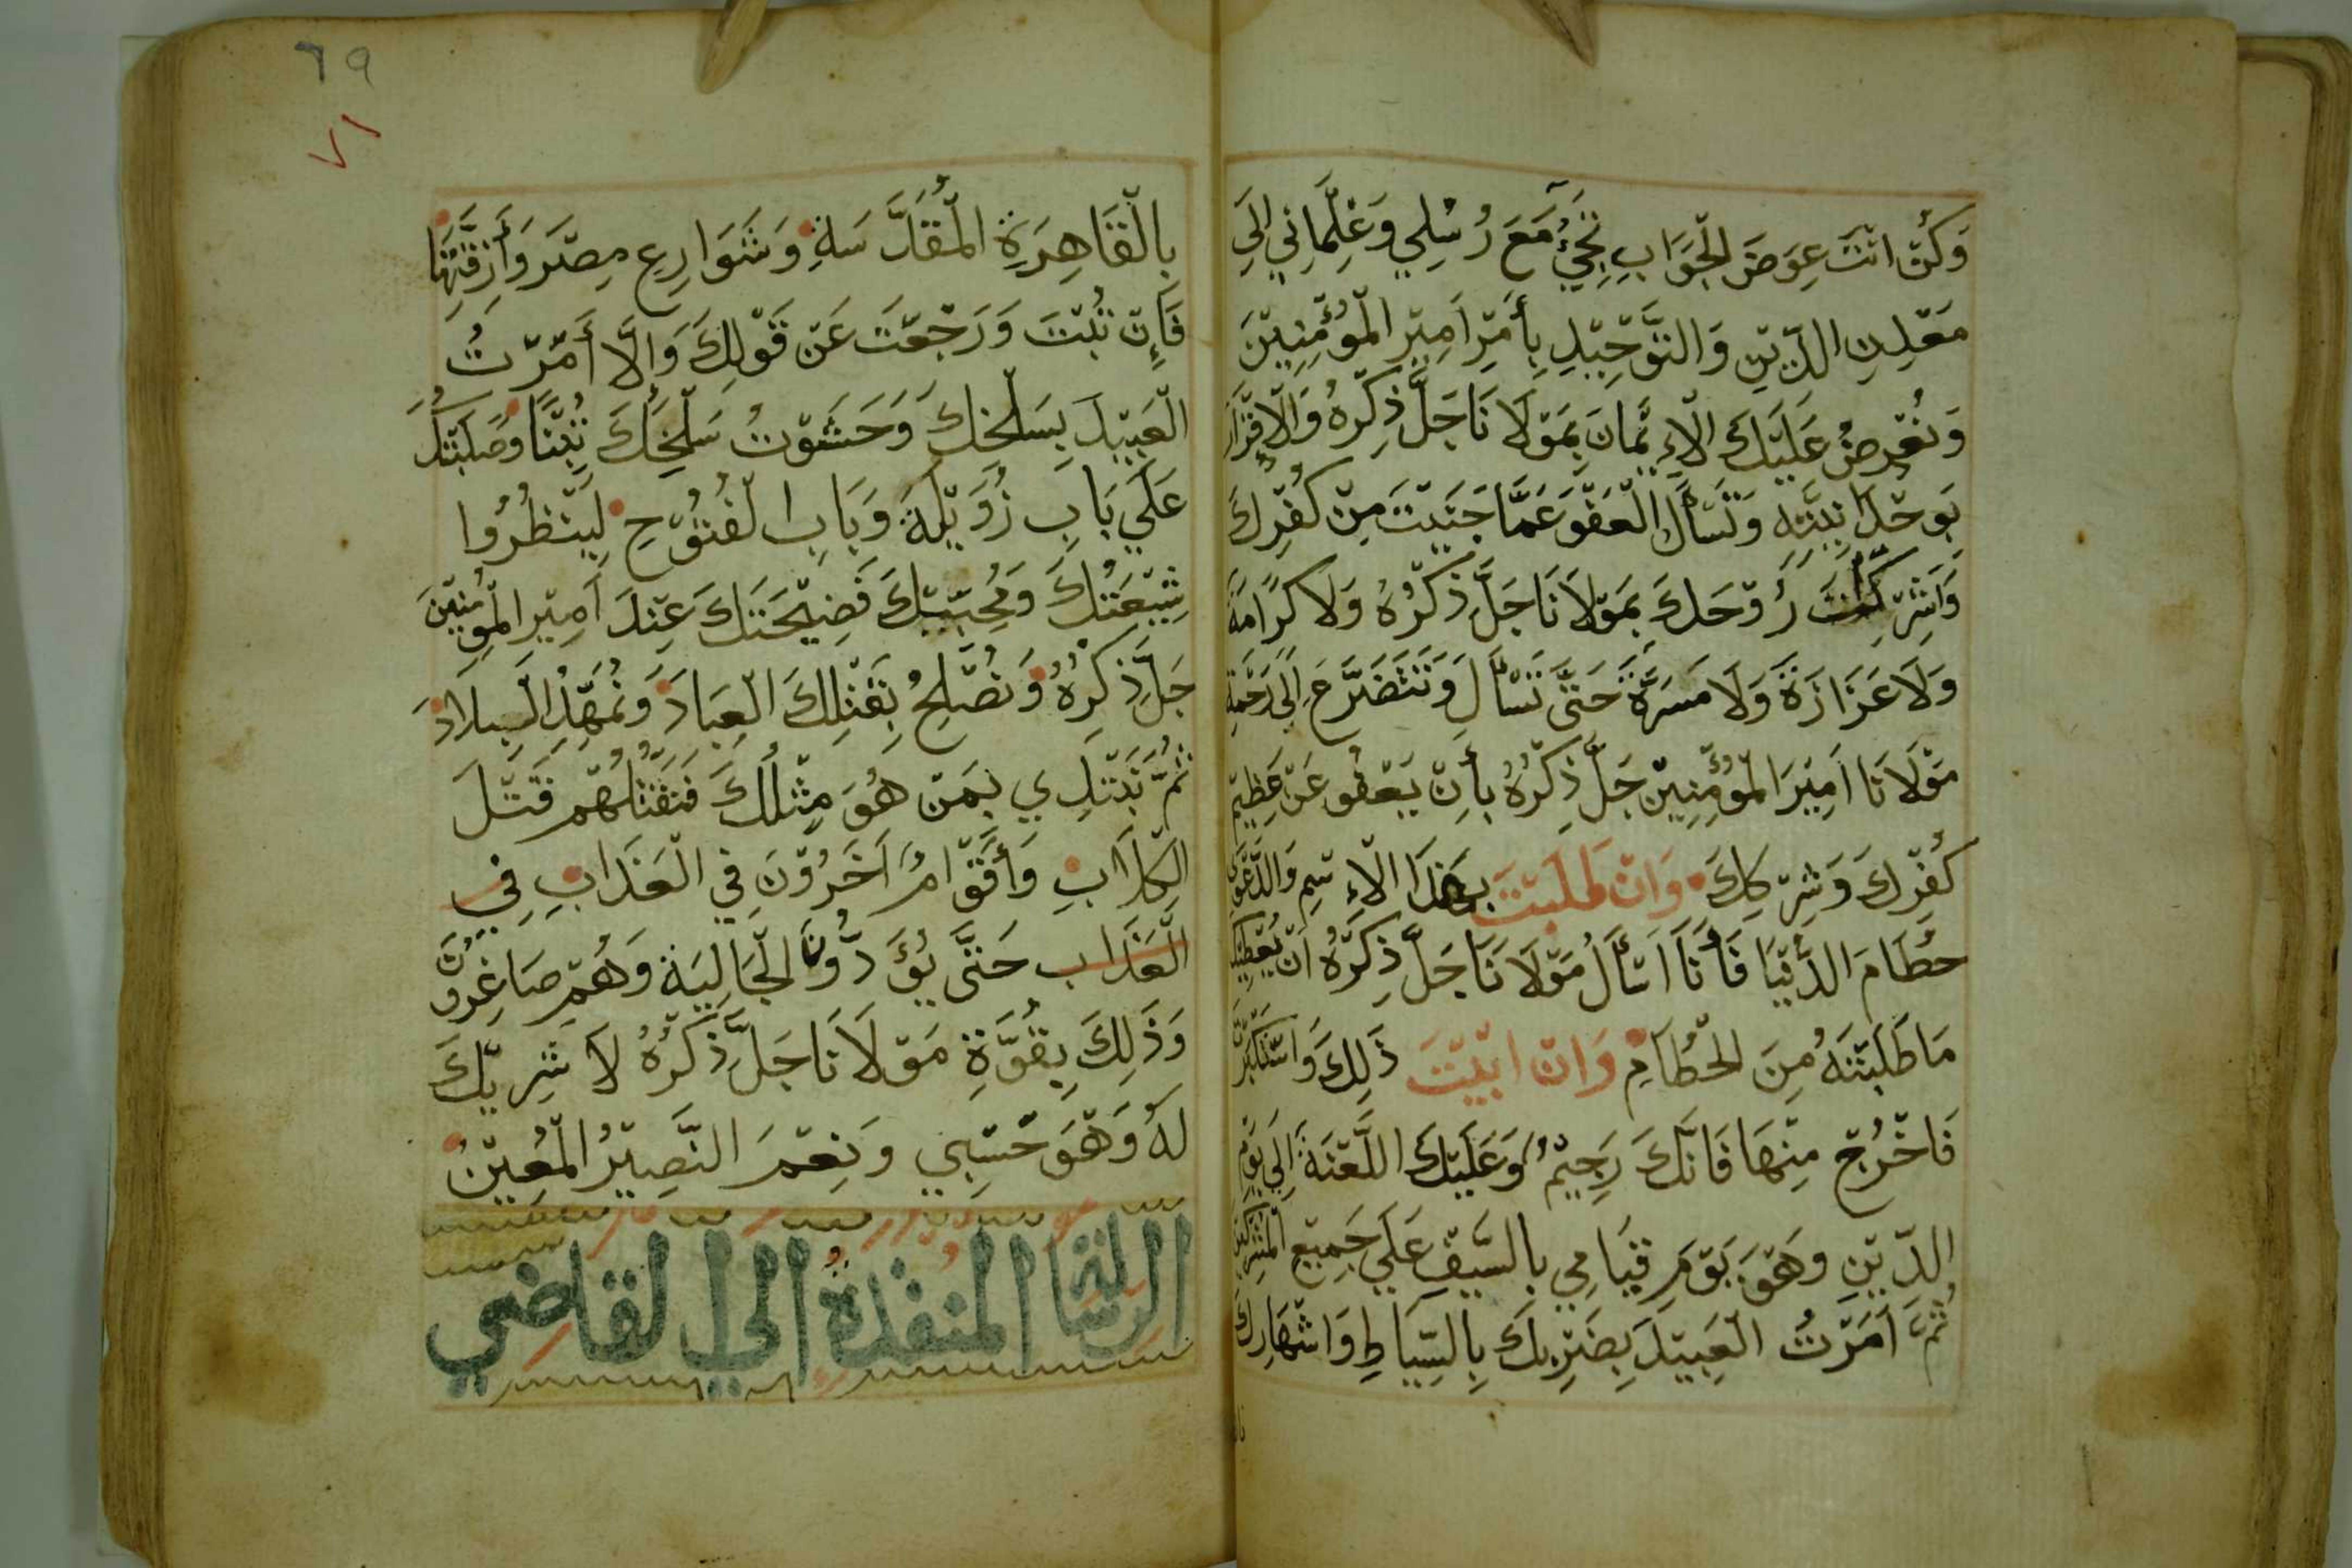 وَكُنْ اَنْتَ عِوَضَ الْجَوَابِ تَجِيْءُ مَعَ رُسُلِي وَغِلْمَانِي اِلَي
مَعْدِنِ الدِّيْنِ وَالتَّوْحِيْدِ بِأَمْرِ اَمِيْرِ الْمُؤْمِنِيْنَ
وَنُعْرِضُ عَلَيْكَ الْإِيْمَانَ بِمَوْلَانَا جَلَّ ذِكْرُهُ وَالْاِقْرَارَ
بِوَحْدَانِيَّتِهِ وَتَسْأَلُ الْعَفْوَ عَمَّا جَنَيْتَ مِنْ كُفْرِكَ
وَاَشْرَكْتَ رُوْحَكَ بِمَوْلَانَا جَلَّ ذِكْرُهُ وَلَا كَرَامَةَ
وَلَا عَزَازَةَ وَلَا مَسَرَّةَ حَتَّى تَسْأَلَ وَتَتَضَرَّعَ اِلَى رَحْمَةِ
مَوْلَانَا اَمِيْرَ الْمُؤْمِنِيْنَ جَلَّ ذِكْرُهُ بِأَنْ يَعْفُو عَنْ عَظِيْمِ
كُفْرِكَ وَشِرْكِكَ وَانْ طَلَبْتَ بِهَذَا الْاِسْمِ وَالدَّعْوَى
حُطَامَ الدُّنْيَا فَأَنَا اَسْأَلُ مَوْلَانَا جَلَّ ذِكْرُهُ اَنْ يُعْطِيْكَ
مَا طَلَبْتَهُ مِنَ الْحُطَامِ وَانْ اَبَيْتَ ذَلِكَ وَاسْتَكْبَرْتَ
فَاخْرُجْ مِنْهَا فَانَّكَ رَجِيْمٌ وَعَلَيْكَ اللَّعْنَةَ اِلَي يَوْمِ
الدِّيْنِ وَهْوَ يَوْمَ قِيَامِي بِالسَّيْفِ عَلَي جَمِيْعِ الْمُشْرِكِيْنَ
ثُمَّ اَمَرْتُ الْعَبِيْدَ بِضَرْبِكَ بِالسِّيَاطِ وَاشْهَارِكَ
٦٩
٧١
بِالْقَاهِرَةِ الْمُقَدَّسَةِ وَشَوَارِعِ مِصْرَ وَأَزِقَّتِهَا
فَإِنْ تُبْتَ وَرَجْعْتَ عَنْ قَوْلِكَ وَالَّا أَمَرْتُ
الْعَبِيْدَ بِسَلْخِكَ وَحَشَوْتُ سَلْخَكَ تِبْنًا وَصَلَبْتُكَ
عَلَي بَابِ زُوَيْلَةَ وَبَابِ الْفُتُوْحِ لِيَنْظُرُوا
شِيْعَتُكَ وَمُحِبِّيْكَ فَضِيْحَتَكَ عِنْدَ اَمِيْرِ الْمُوْمِنِيْنَ
جَلَّ ذِكْرُهُ وَنُصْلِحُ بِقَتْلِكَ الْعِبَادَ وَنُمَهِّدُ الْبِلَادَ
ثُمَّ نَبْتَدِي بِمَنْ هُوَ مِثْلُكَ فَنَقْتُلُهُمْ قَتْلَ
الْكِلَابِ وَأَقْوَامٌ اَخَرُوْنَ فِي الْعَذَابِ فِي
الْعَذَابِ حَتَّى يُؤَدُّونَ الْجَالِيَةَ وَهُمْ صَاغِرُوْنَ
وَذَلِكَ بِقُوَّةِ مَوْلَانَا جَلَّ ذِكْرُهُ لَا شَرِيْكَ
لَهُ وَهْوَ حَسْبِي وَنِعْمَ النَّصِيْرُ الْمُعِيْنُ
الرسالة المنفذة الى القاضي